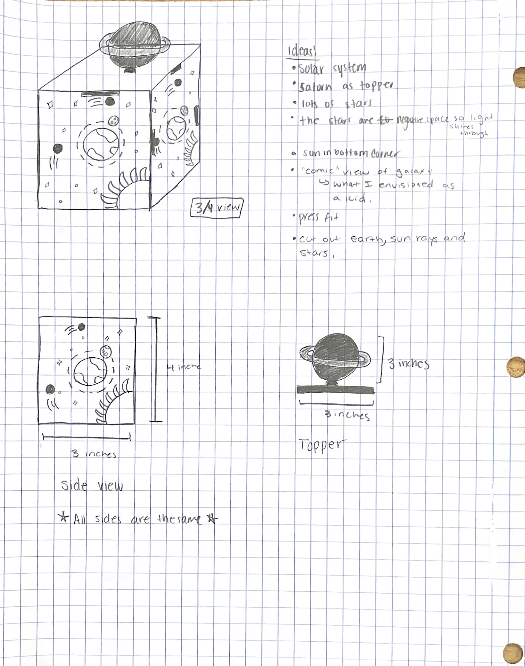 Ideas!
• Solar system
• Saturn as topper
• lots of stars
• the stars are negative space so light
shines
through
• sun in bottom corner
• "comic" view of galaxy
↳ what I envisioned as
a kid.
• press fit
• cut out earth, sun rays and
stars.
3/4 view
4 inches
3 inches
3 inches
3 inches
Topper
Side view
★ All sides are the same ★